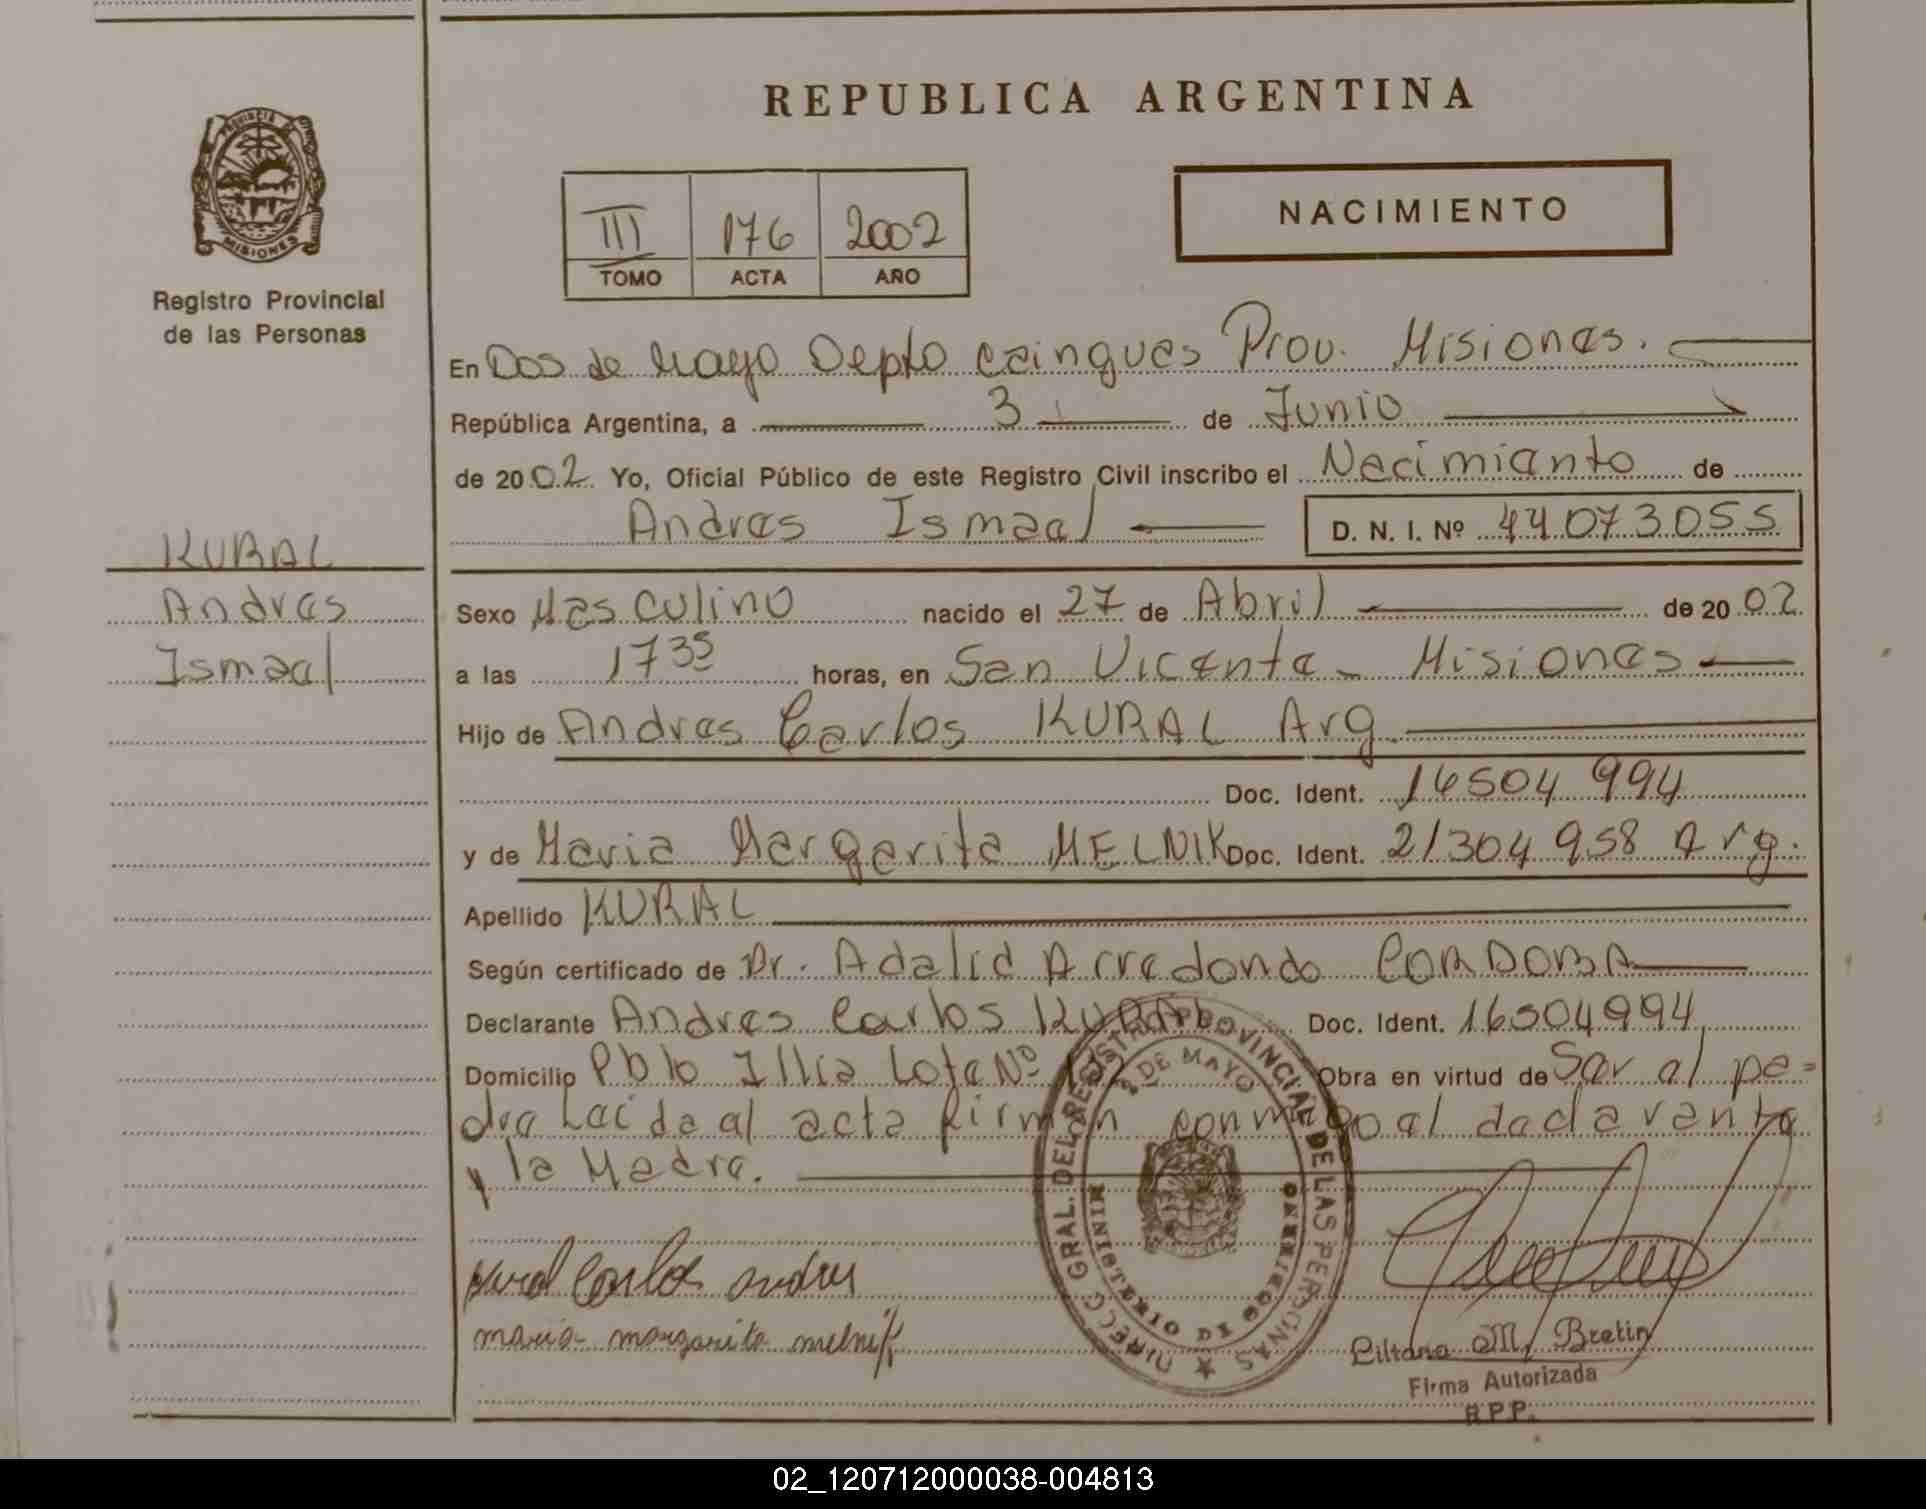 REPUBLICA ARGENTINA
PROVINCIA DE
MISIONES
Registro Provincial
de las Personas
III 176 2002
TOMO ACTA AÑO
NACIMIENTO
En Dos de Mayo Depto Cainguas Prov. Misiones.
República Argentina, a 3 de Junio
de 2002 Yo, Oficial Público de este Registro Civil inscribo el Nacimiento de
Andres Ismael D. N. I. Nº 44.073.055
KURAL
Andres
Ismael
Sexo Masculino nacido el 27 de Abril de 2002
a las 1735 horas, en San Vicente - Misiones
Hijo de Andres Carlos KURAL Arg.
Doc. Ident. 16504 994
y de Maria Margarita MELNIK Doc. Ident. 21304 958 Arg.
Apellido KURAL
Según certificado de Dr. Adalid Arredondo CORDOBA
Declarante Andres Carlos KURAL Doc. Ident. 16504994
Domicilio Pblo Illia Lote Nº Obra en virtud de Ser el pa=
dre Leida el acta firman conmigo el declarante
y la Madre.
DIRECC GRAL. DEL REGISTRO PROVINCIAL DE LAS PERSONAS
2 DE MAYO
MINISTERIO DE GOBIERNO
Kural Carlos Andres
maria margarita melnik
Liliana M. Bretin
Firma Autorizada
R.P.P.
02_120712000038-004813